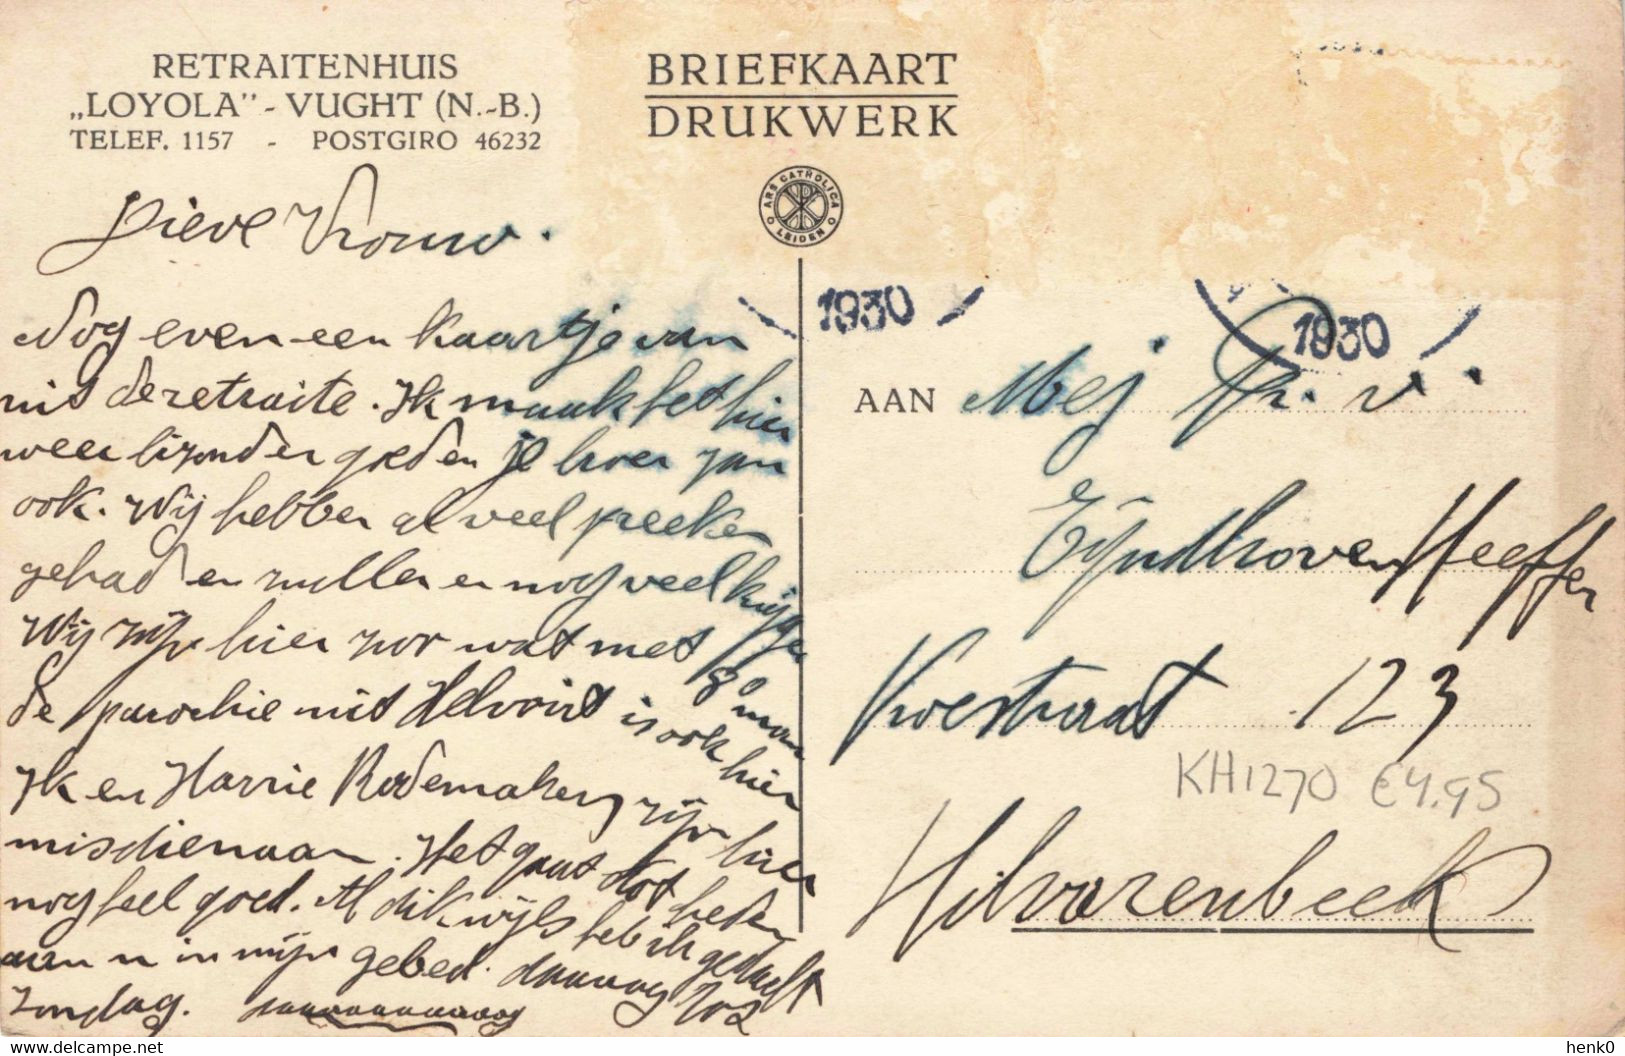 RETRAITENHUIS
„LOYOLA” - VUGHT (N.-B.)
TELEF. 1157 - POSTGIRO 46232
BRIEFKAART
DRUKWERK
ARS CATHOLICA
LEIDEN
Lieve Vrouw.
Nog even een kaartje van
uit de retraite. Ik maak het hier
weer bizonder goed en je broer Jan
ook. Wij hebben al veel preeken
gehad en zullen er nog veel krijgen
Wij zijn hier zoo wat met 80 man
de parochie uit Helvoirt is ook hier
Ik en Harrie Rodemakers zijn hier
misdienaar. Het gaat tot heden
nog heel goed. Al dikwijls heb ik gedacht
aan u in mijn gebed.
Zondag.
1930
1930
AAN Mej v.
Eijndhoven Heeffer
Koestraat 123
KH1270 €4.95
Hilvarenbeek
henk0
www.delcampe.net